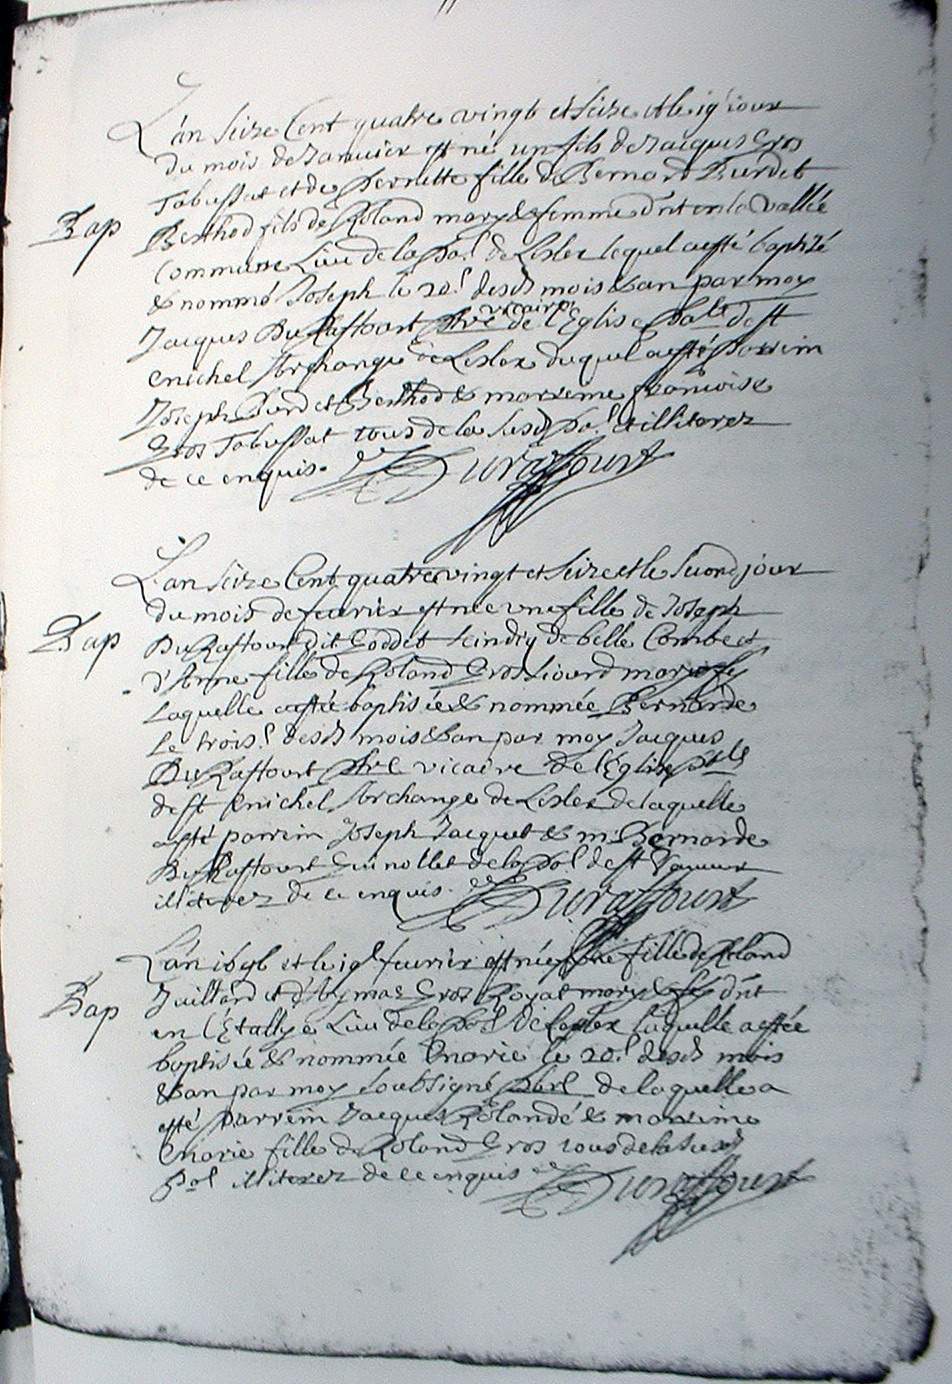 L'an seize Cent quatre vingt et seize et le 19 jour
du mois de Janvier est né un fils de Jacques Gros
Tabussat et de Pernette fille de Bernard Burdet
Bap
Berthod fils de Roland mary & femme d'nt en la Vallée
Commune Lieu de la Pal de Lesler lequel a esté baptizé
& nommé Joseph le 20e desd mois & an par moy
Jacques Duraffourt Pbre vicaire de l'Eglise Palle de st
Michel Archange de Lesler duquel a esté Parrein
Joseph Burdet Berthod & marreine francoise
Gros Tabussat tous de la susd Pal et illiterez
de ce enquis. Duraffourt
L'an seize Cent quatre vingt et seize et le second jour
du mois de fevrier est née une fille de Joseph
Bap
Duraffourt dit Goddet scindiq de belle Combe et
d'Anne fille de Roland Gros Liourd mary & fe
laquelle a esté baptisée & nommée Bernarde
Le trois.e desd mois & an par moy Jacques
Duraffourt Pbre vicaire de l'Eglise Palle
de st Michel Archange de Lesler de laquelle
a esté parrein Joseph Jacquet & m. Bernarde
Duraffourt Guinollet de la Pal de st
illiterez de ce enquis. Duraffourt
L'an 1696 et le 19e fevrier est née une fille de Roland
Bap
Juillard et d'Aymaz Gros Royat mary & fe d'nt
en l'Etallye Lieu de la Pal de Lesler laquelle a estée
baptisée & nommée Marie le 20.e desd mois
& an par moy soubsigné de laquelle a
esté parrein Jacques Rolandé & marreine
Marie fille de Roland Gros tous de la susd
Pal illiterez de ce enquis Duraffourt